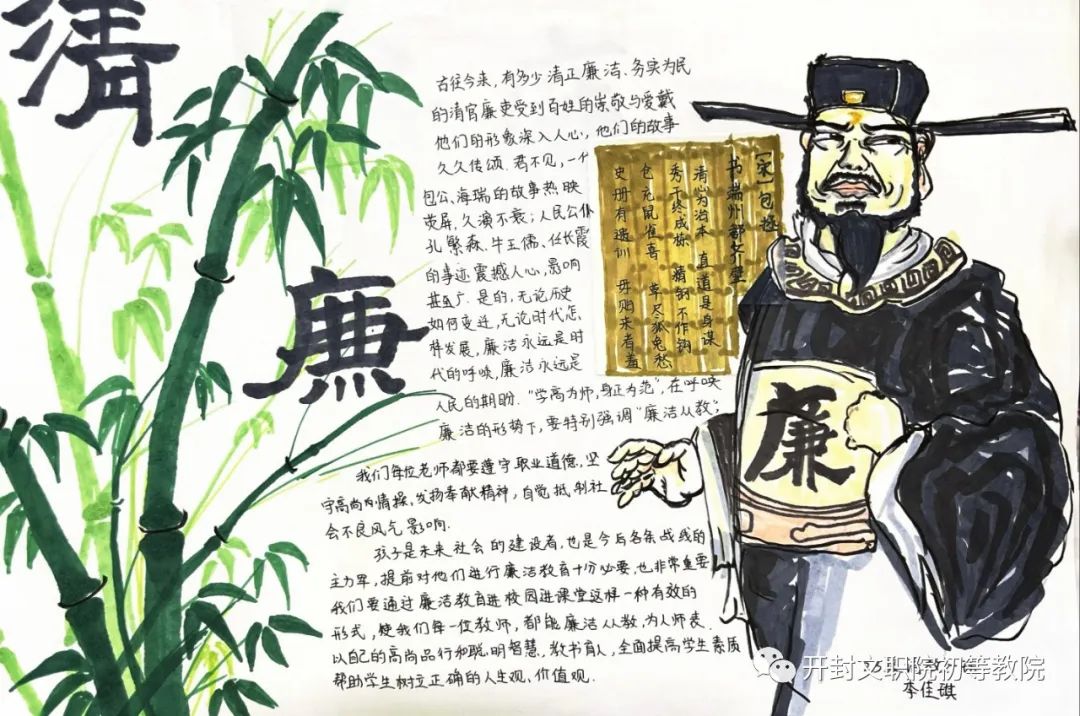 清
廉
古往今来，有多少清正廉洁、务实为民
的清官廉吏受到百姓的崇敬与爱戴
他们的形象深入人心，他们的故事
久久传颂. 君不见，一个
包公、海瑞的故事热映
荧屏，久演不衰；人民公仆
孔繁森、牛玉儒、任长霞
的事迹震撼人心，影响
甚广. 是的，无论历史
如何变迁，无论时代怎
样发展，廉洁永远是时
代的呼唤，廉洁永远是
人民的期盼. “学高为师，身正为范”，在呼唤
廉洁的形势下，要特别强调“廉洁从教”；
我们每位老师都要遵守职业道德，坚
守高尚内情操，发扬奉献精神，自觉抵制社
会不良风气影响.
孩子是未来社会的建设者，也是今后各条战线的
主力军，提前对他们进行廉洁教育十分必要，也非常重要
我们要通过廉洁教育进校园进课堂这样一种有效的
形式，使我们每一位教师，都能廉洁从教，为人师表.
以自己的高尚品行和聪明智慧，教书育人，全面提高学生素质
帮助学生树立正确的人生观、价值观.
[宋] 包拯
书端州郡斋壁
清心为治本 直道是身谋
秀干终成栋 精钢不作钩
仓充鼠雀喜 草尽狐兔愁
史册有遗训 毋贻来者羞
廉
开封文职院初等教院
李佳琪